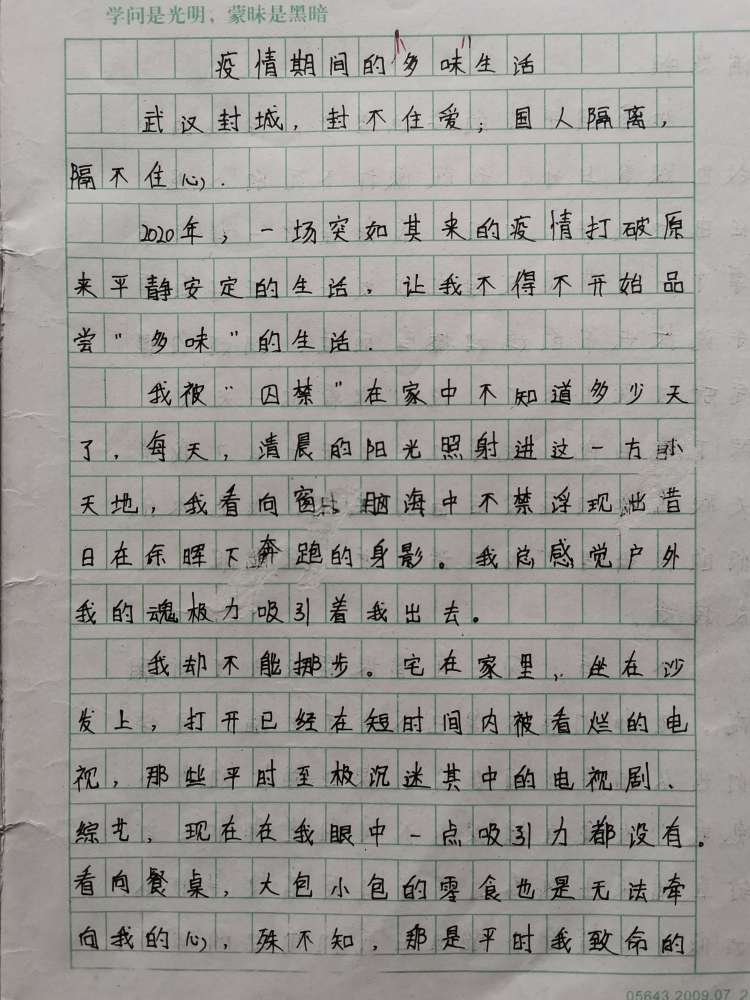 学问是光明，蒙昧是黑暗
疫情期间的“多味”生活
武汉封城，封不住爱；国人隔离，
隔不住心.
2020年，一场突如其来的疫情打破原
来平静安定的生活，让我不得不开始品
尝“多味”的生活.
我被“囚禁”在家中不知道多少天
了，每天，清晨的阳光照射进这一方小
天地，我看向窗外脑海中不禁浮现出昔
日在余晖下奔跑的身影。我总感觉户外
我的魂极力吸引着我出去。
我却不能挪步。宅在家里，坐在沙
发上，打开已经在短时间内被看烂的电
视，那些平时至极沉迷其中的电视剧、
综艺，现在在我眼中一点吸引力都没有。
看向餐桌，大包小包的零食也是无法牵
向我的心，殊不知，那是平时我致命的
05643.2009.07.2